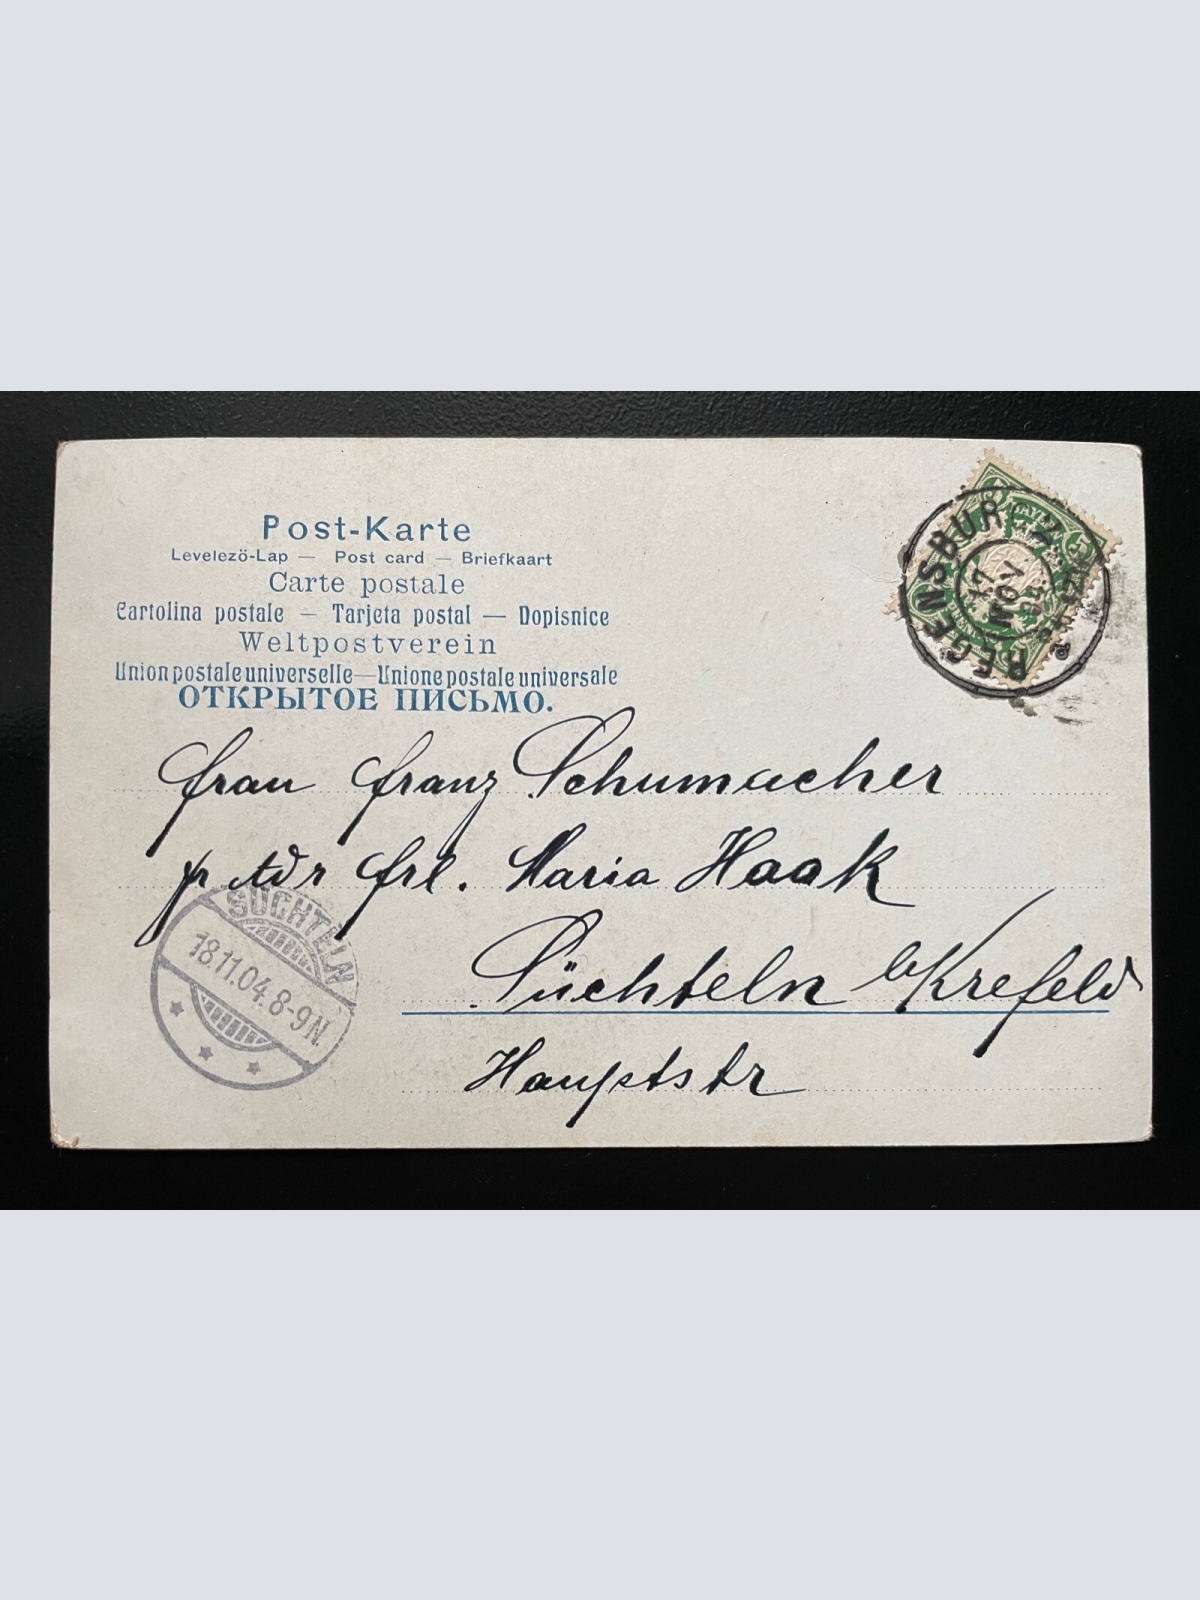 Post-Karte
Levelezö-Lap — Post card — Briefkaart
Carte postale
Cartolina postale — Tarjeta postal — Dopisnice
Weltpostverein
Union postale universelle — Unione postale universale
ОТКРЫТОЕ ПИСЬМО.
REGENSBURG
17
NOV.
Frau Franz Schumacher
pr Adr Frl. Maria Haak
SÜCHTELN
18.11.04. 8-9N.
Süchteln b/Krefeld
Hauptstr